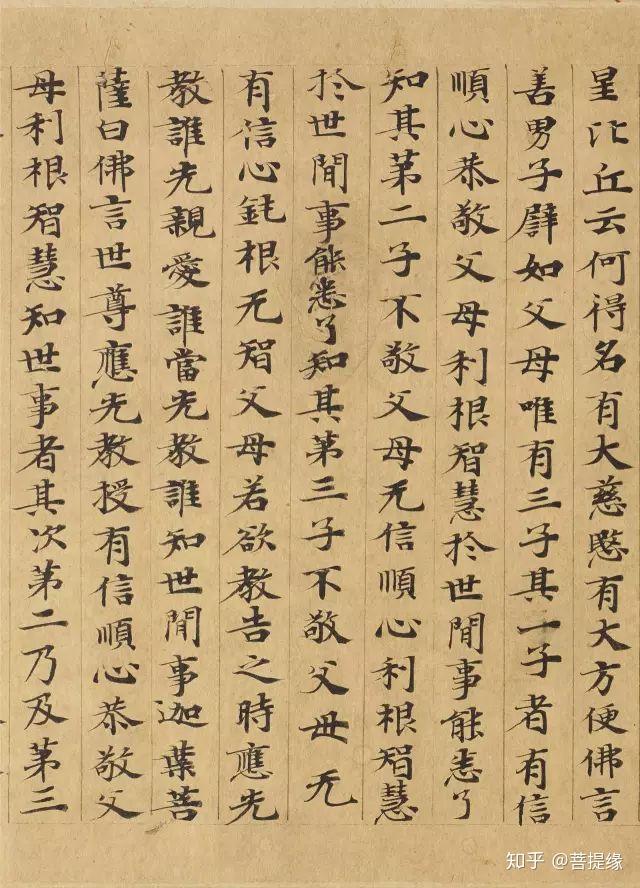 星比丘云何得名有大慈愍有大方便佛言
善男子譬如父母唯有三子其一子者有信
順心恭敬父母利根智慧於世間事能悉了
知其第二子不敬父母无信順心利根智慧
於世間事能悉了知其第三子不敬父母无
有信心鈍根无智父母若欲教告之時應先
教誰先親愛誰當先教誰知世間事迦葉菩
薩白佛言世尊應先教授有信順心恭敬父
母利根智慧知世事者其次第二乃及第三
知乎 @菩提缘